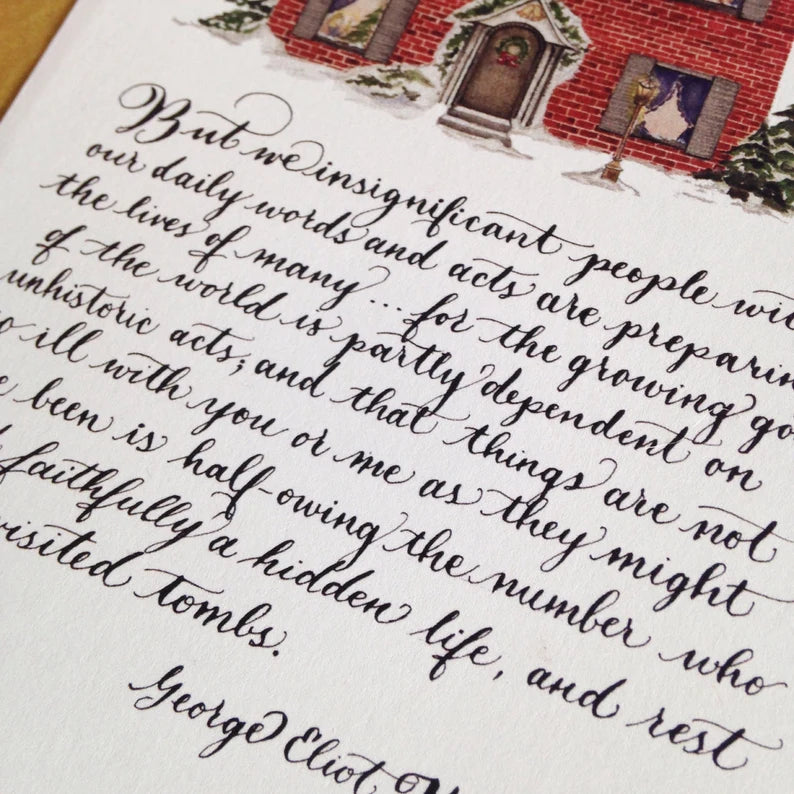 But we insignificant people wit
our daily words and acts are preparin
the lives of many ... for the growing go
of the world is partly dependent on
unhistoric acts; and that things are not
o ill with you or me as they might
e been is half-owing the number who
faithfully a hidden life, and rest
visited tombs.
George Eliot,